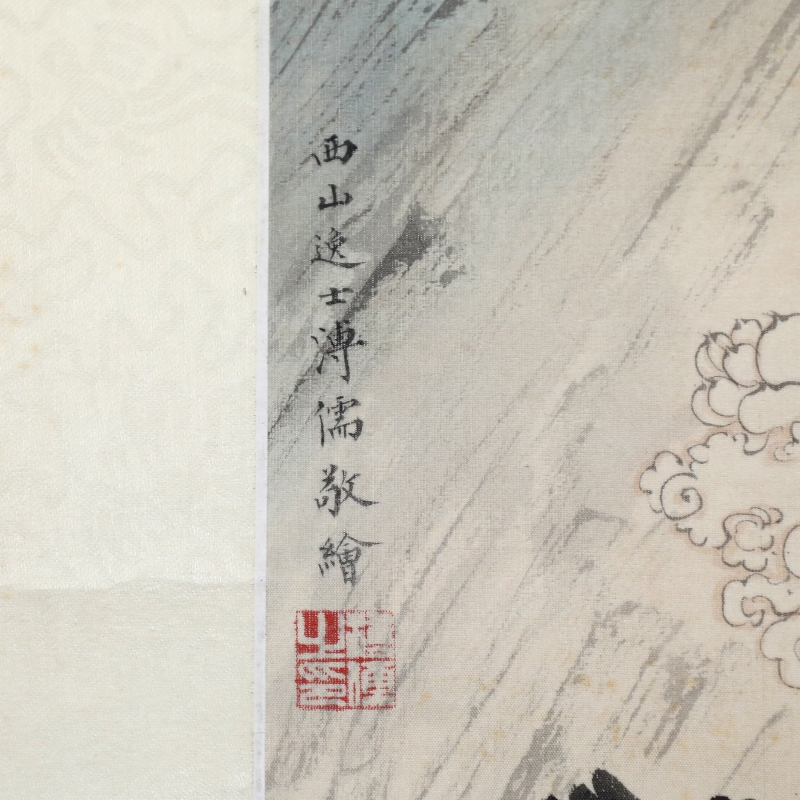 西山逸士溥儒敬繪